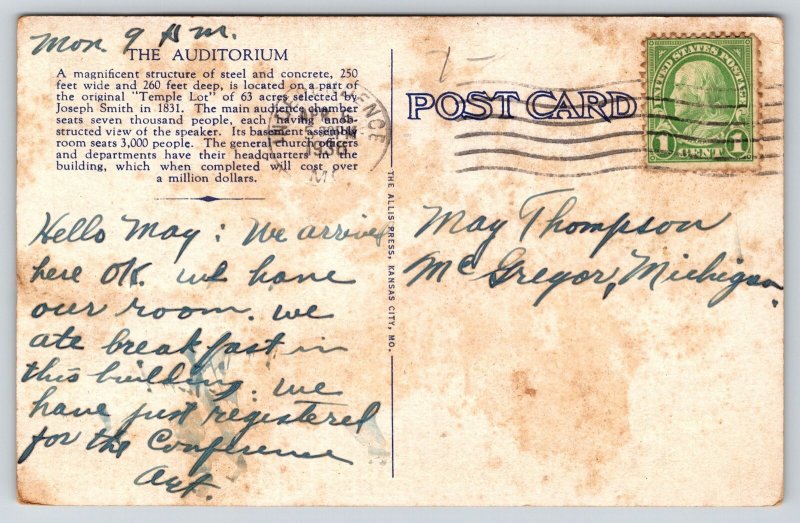 Mon 9 A.M.
THE AUDITORIUM
A magnificent structure of steel and concrete, 250
feet wide and 260 feet deep, is located on a part of
the original "Temple Lot" of 63 acres selected by
Joseph Smith in 1831. The main audience chamber
seats seven thousand people, each having unob-
structed view of the speaker. Its basement assembly
room seats 3,000 people. The general church officers
and departments have their headquarters in the
building, which when completed will cost over
a million dollars.
Hello May: We arrived
here OK. we have
our room. we
ate breakfast in
this building. we
have just registered
for the Conference
THE ALLIS PRESS, KANSAS CITY, MO.
POST CARD
UNITED STATES POSTAGE
1 CENT 1
May Thompson
McGregor, Michigan.